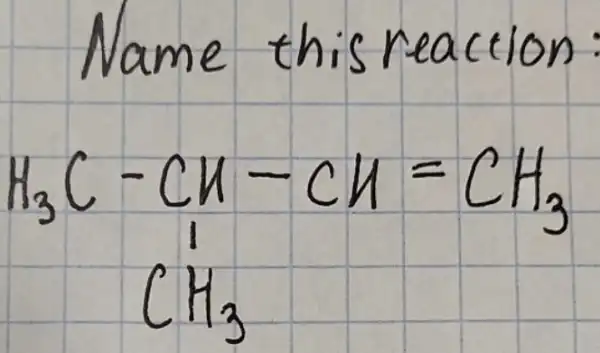 Name this reaction:
H₃C - CH - CH = CH₃
|
CH₃